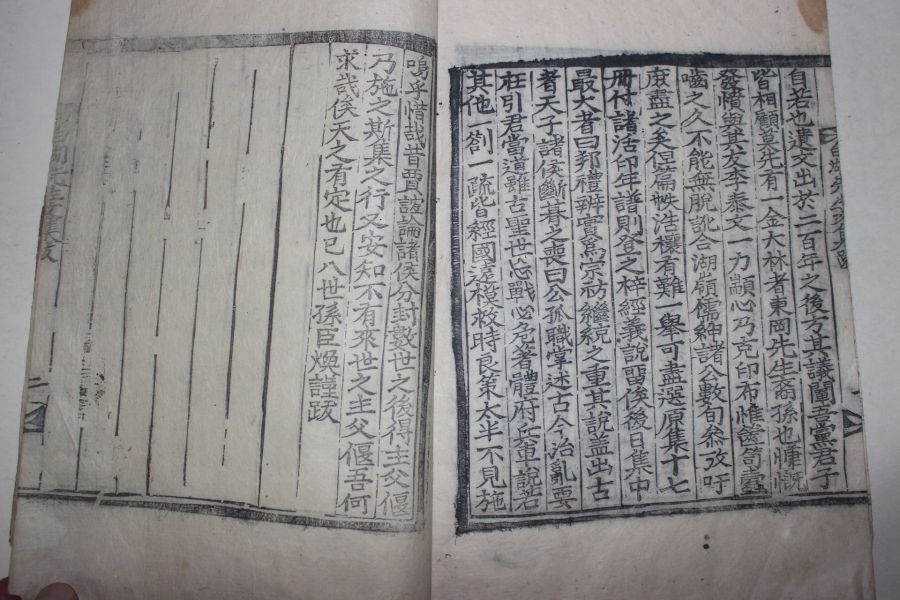 自若也遺文出於二百年之後方其議闡吾黨君子
皆相顧莫先有一金大林者東岡先生裔孫也慷慨
發憤與其友李泰文一力顓心乃克印布惟篋笥蠹
嚙之久不能無脫訛合湖嶺儒紳諸公數旬叅攷吁
庶盡之矣但篇帙浩穰有難一舉可盡選原集十七
冊付諸活印年譜則登之梓經義說留俟後日集中
最大者曰邦禮辨實爲宗祊繼統之重其說盖出古
者天子諸侯斷朞之喪曰公孤職掌述古今治亂要
在引君當道雖古聖世忘戰必危著體府兵車說若
其他劄一疏皆經國遠模救時良策太半不見施
嗚乎惜哉昔賈誼論諸侯分封數世之後得主父偃
乃施之斯集之行又安知不有來世之主父偃吾何
求哉俟天之有定也已八世孫臣煥謹跋
二